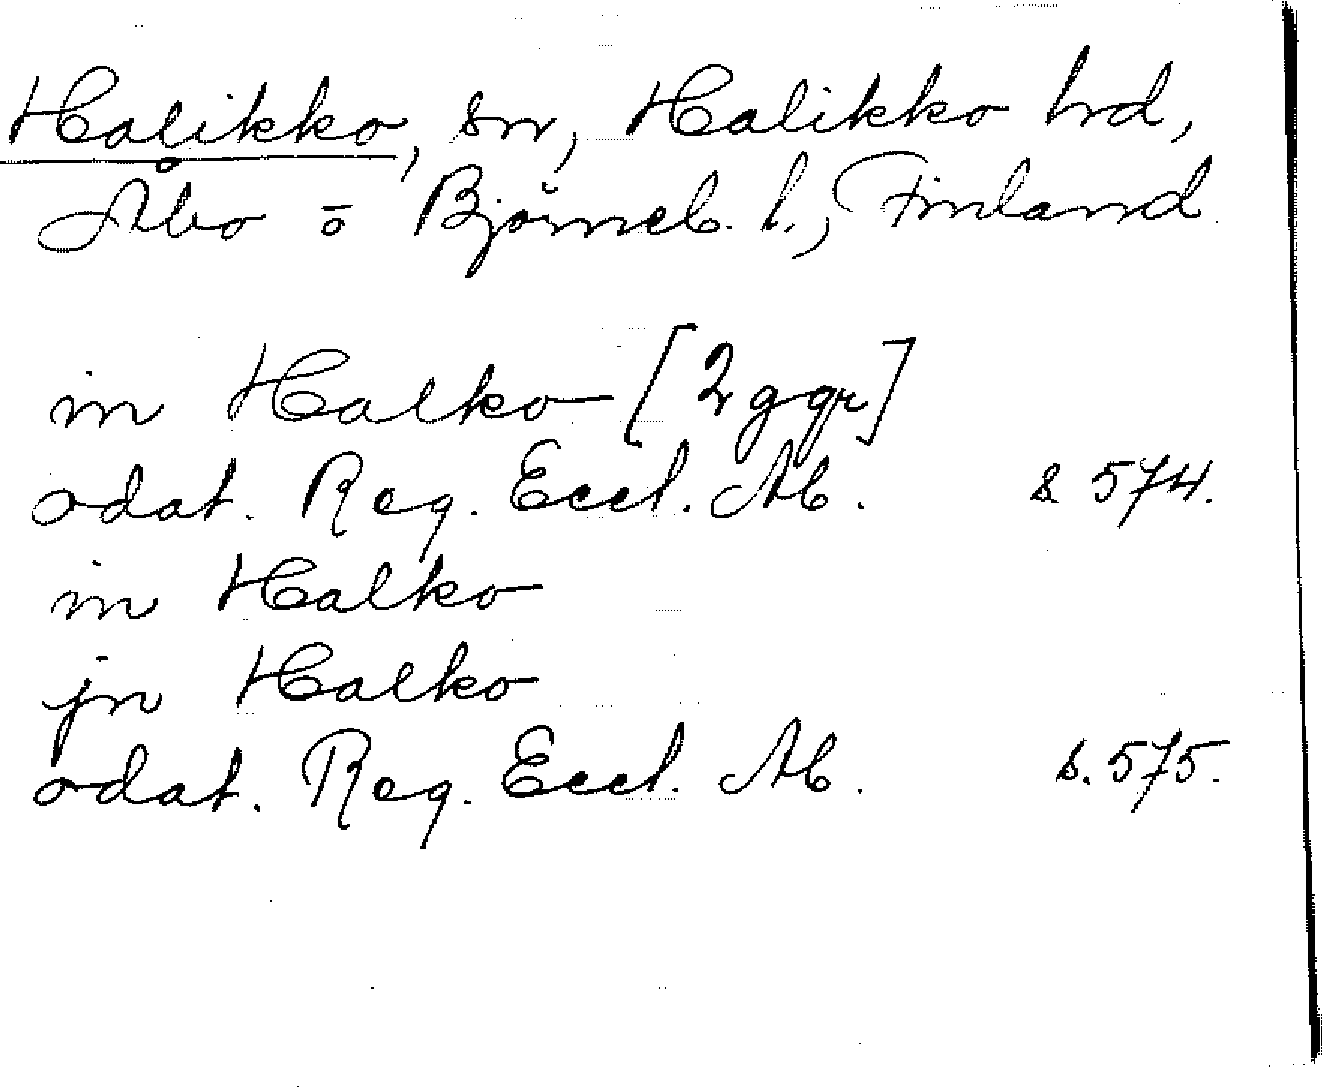 Halikko, sn, Halikko hrd,
Åbo o Björneb. l., Finland.
in Halko [2 ggr]
odat. Reg. Eccl. Ab. s. 574.
in Halko
jn Halko
odat. Reg. Eccl. Ab. s. 575.